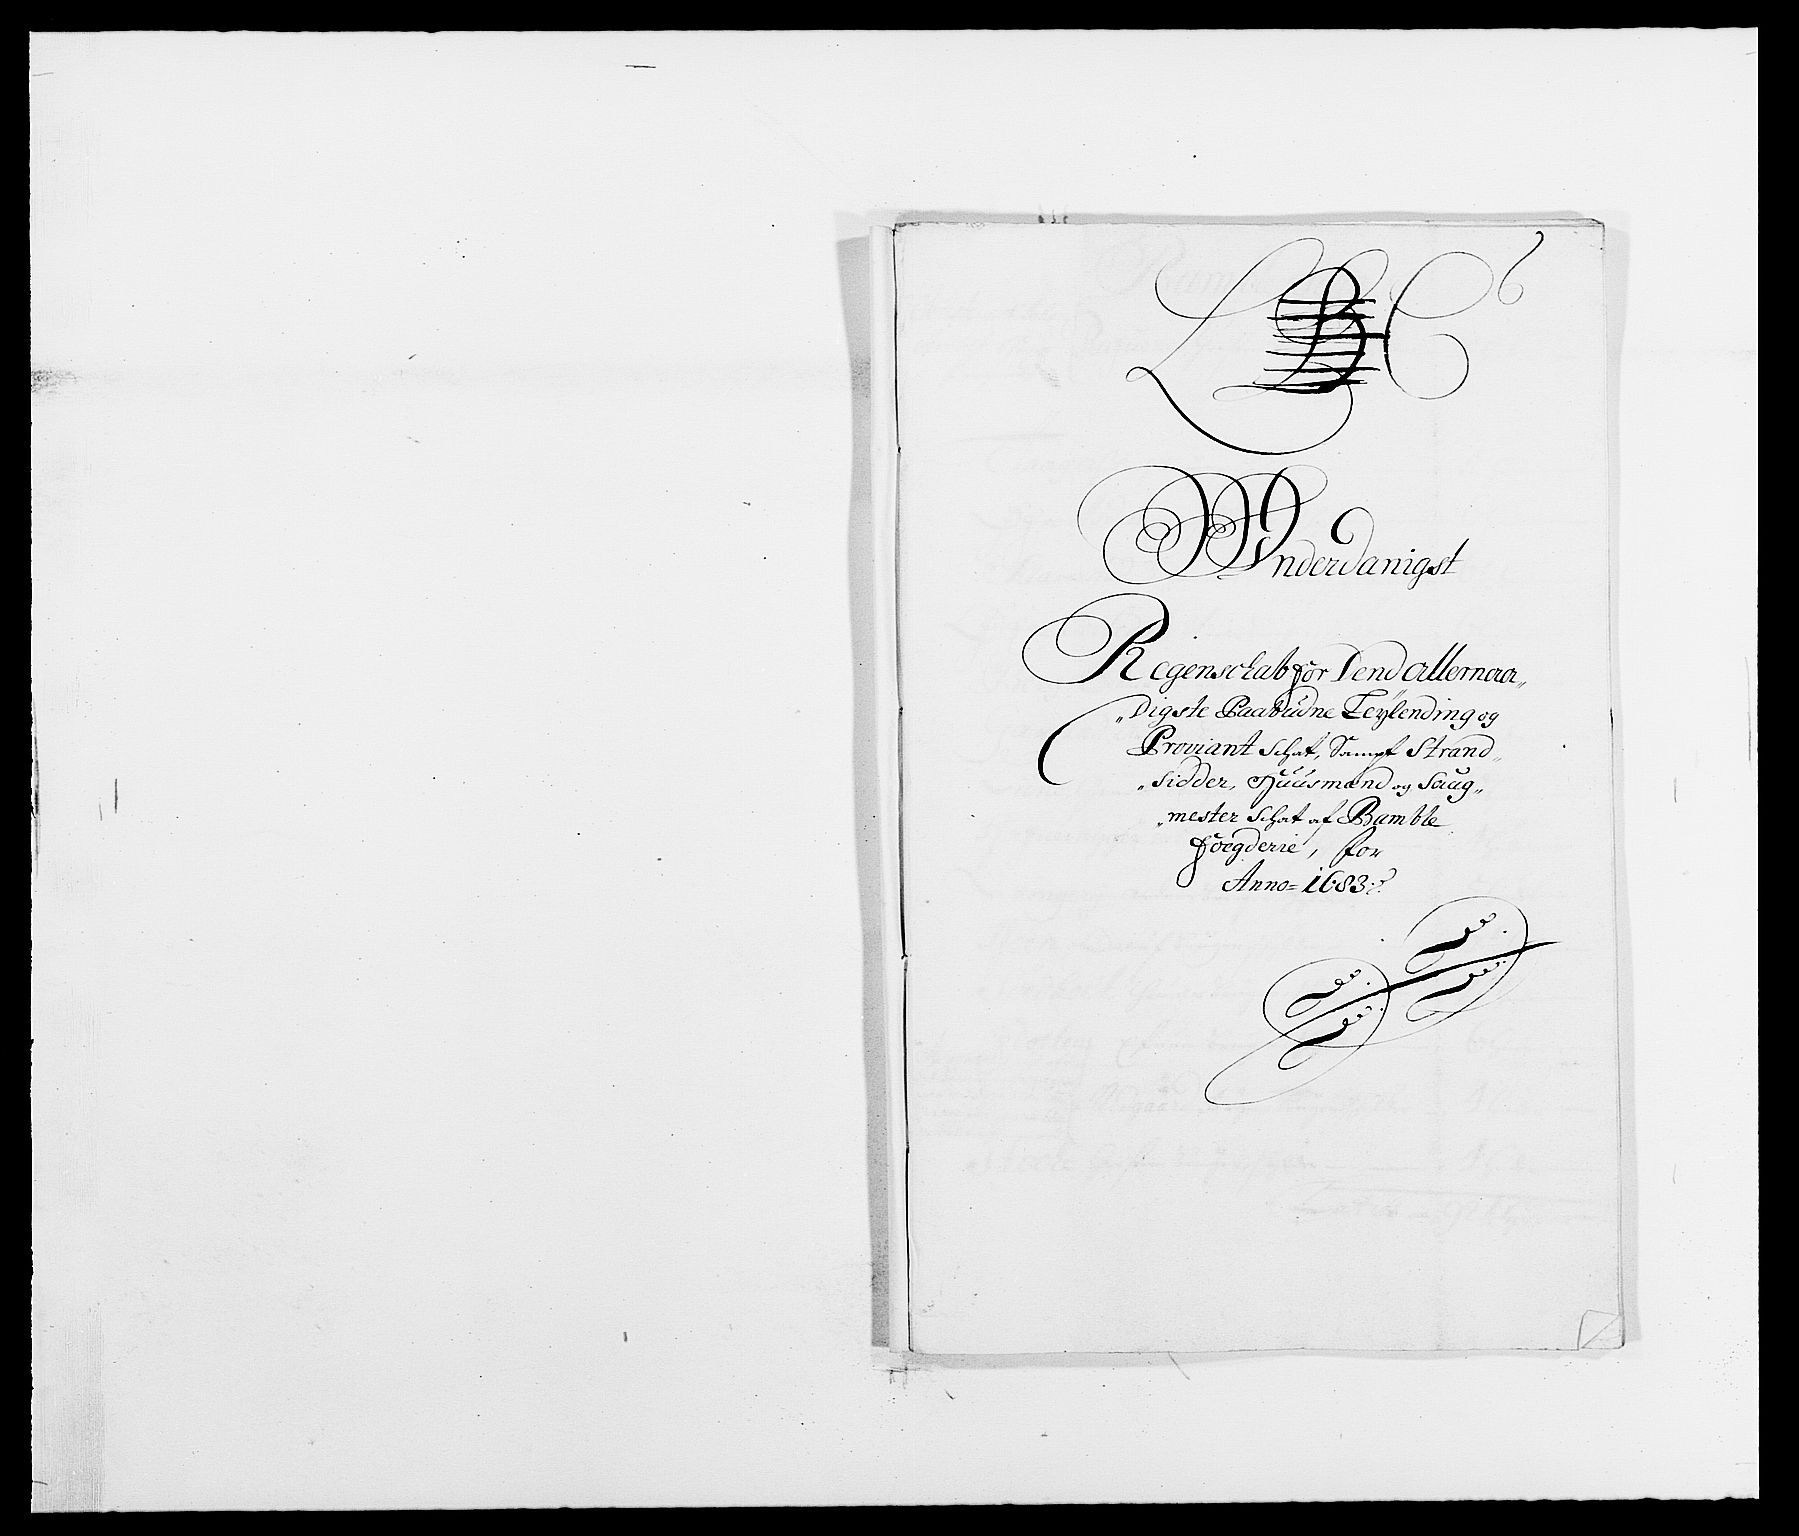 L B C
Wnderdanigst
Regenschab for Dend Allernaa„
„digste Paabudne Leylending og
Proviant Schat, Sampt Strand„
„sidder, Huusmænd og Saug„
„mester Schat af Bamble
foegderie, for
Anno= 1683: